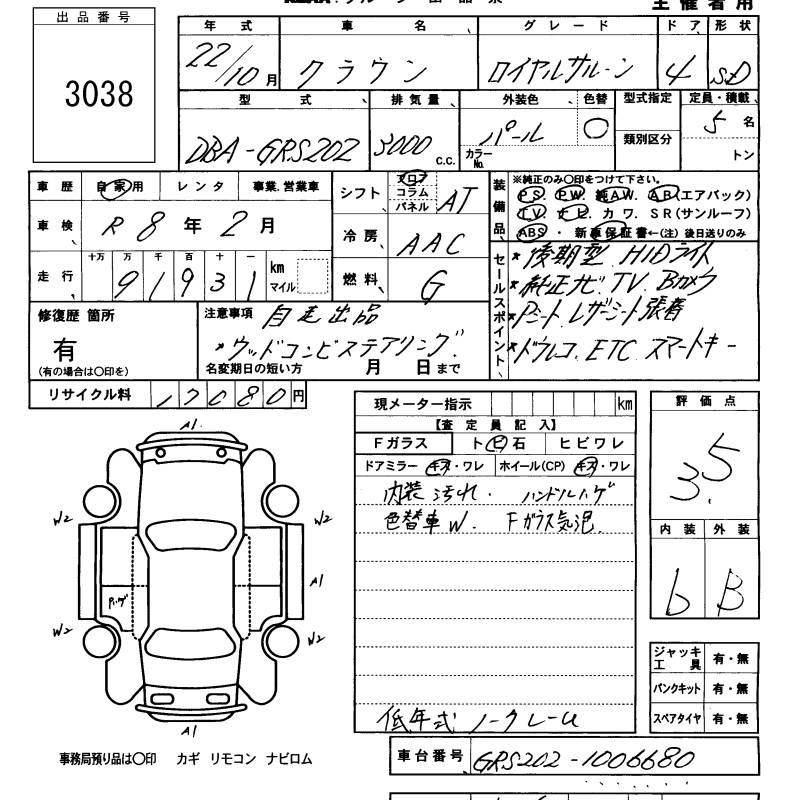 出品番号
3038
主催者用
年式 車名 グレード ドア 形状
22/10月 クラウン ロイヤルサルーン 4 SD
型式 排気量 外装色 色替 型式指定 定員・積載
類別区分
DBA-GRS202 3000 C.C. パール ○ 5名
カラーNo. トン
車歴 自家用 レンタ 事業.営業車
車検 R 8年 2月
走行 十万 万 千 百 十 一
91931 km マイル
シフト フロア コラム パネル AT
冷房 AAC
燃料 G
装備品
※純正のみ○印をつけて下さい。
PS. PW. 純AW. AB(エアバック)
TV. ナビ. カワ. SR(サンルーフ)
ABS ・ 新車保証書←(注)後日送りのみ
セールスポイント
*後期型 HIDライト
*純正ナビ TV Bカメラ
*Pシート レザーシート張着
*ドラレコ. ETC スマートキー
修復歴 箇所
有
(有の場合は○印を)
注意事項 自走出品
*ウッドコンビステアリング.
名変期日の短い方 月 日まで
リサイクル料 17080円
現メーター指示 km
【査定員記入】
Fガラス トビ石 ヒビワレ
ドアミラー キズ・ワレ ホイール(CP) キズ・ワレ
内装汚れ. ハンドルハゲ
色替車W. Fガラス気泡
低年式 ノークレーム
評価点
3.5
内装 外装
b B
ジャッキ工具 有・無
パンクキット 有・無
スペアタイヤ 有・無
A1
W2 W2
A1
W2 W2
A1
事務局預り品は○印 カギ リモコン ナビロム
車台番号 GRS202-1006680